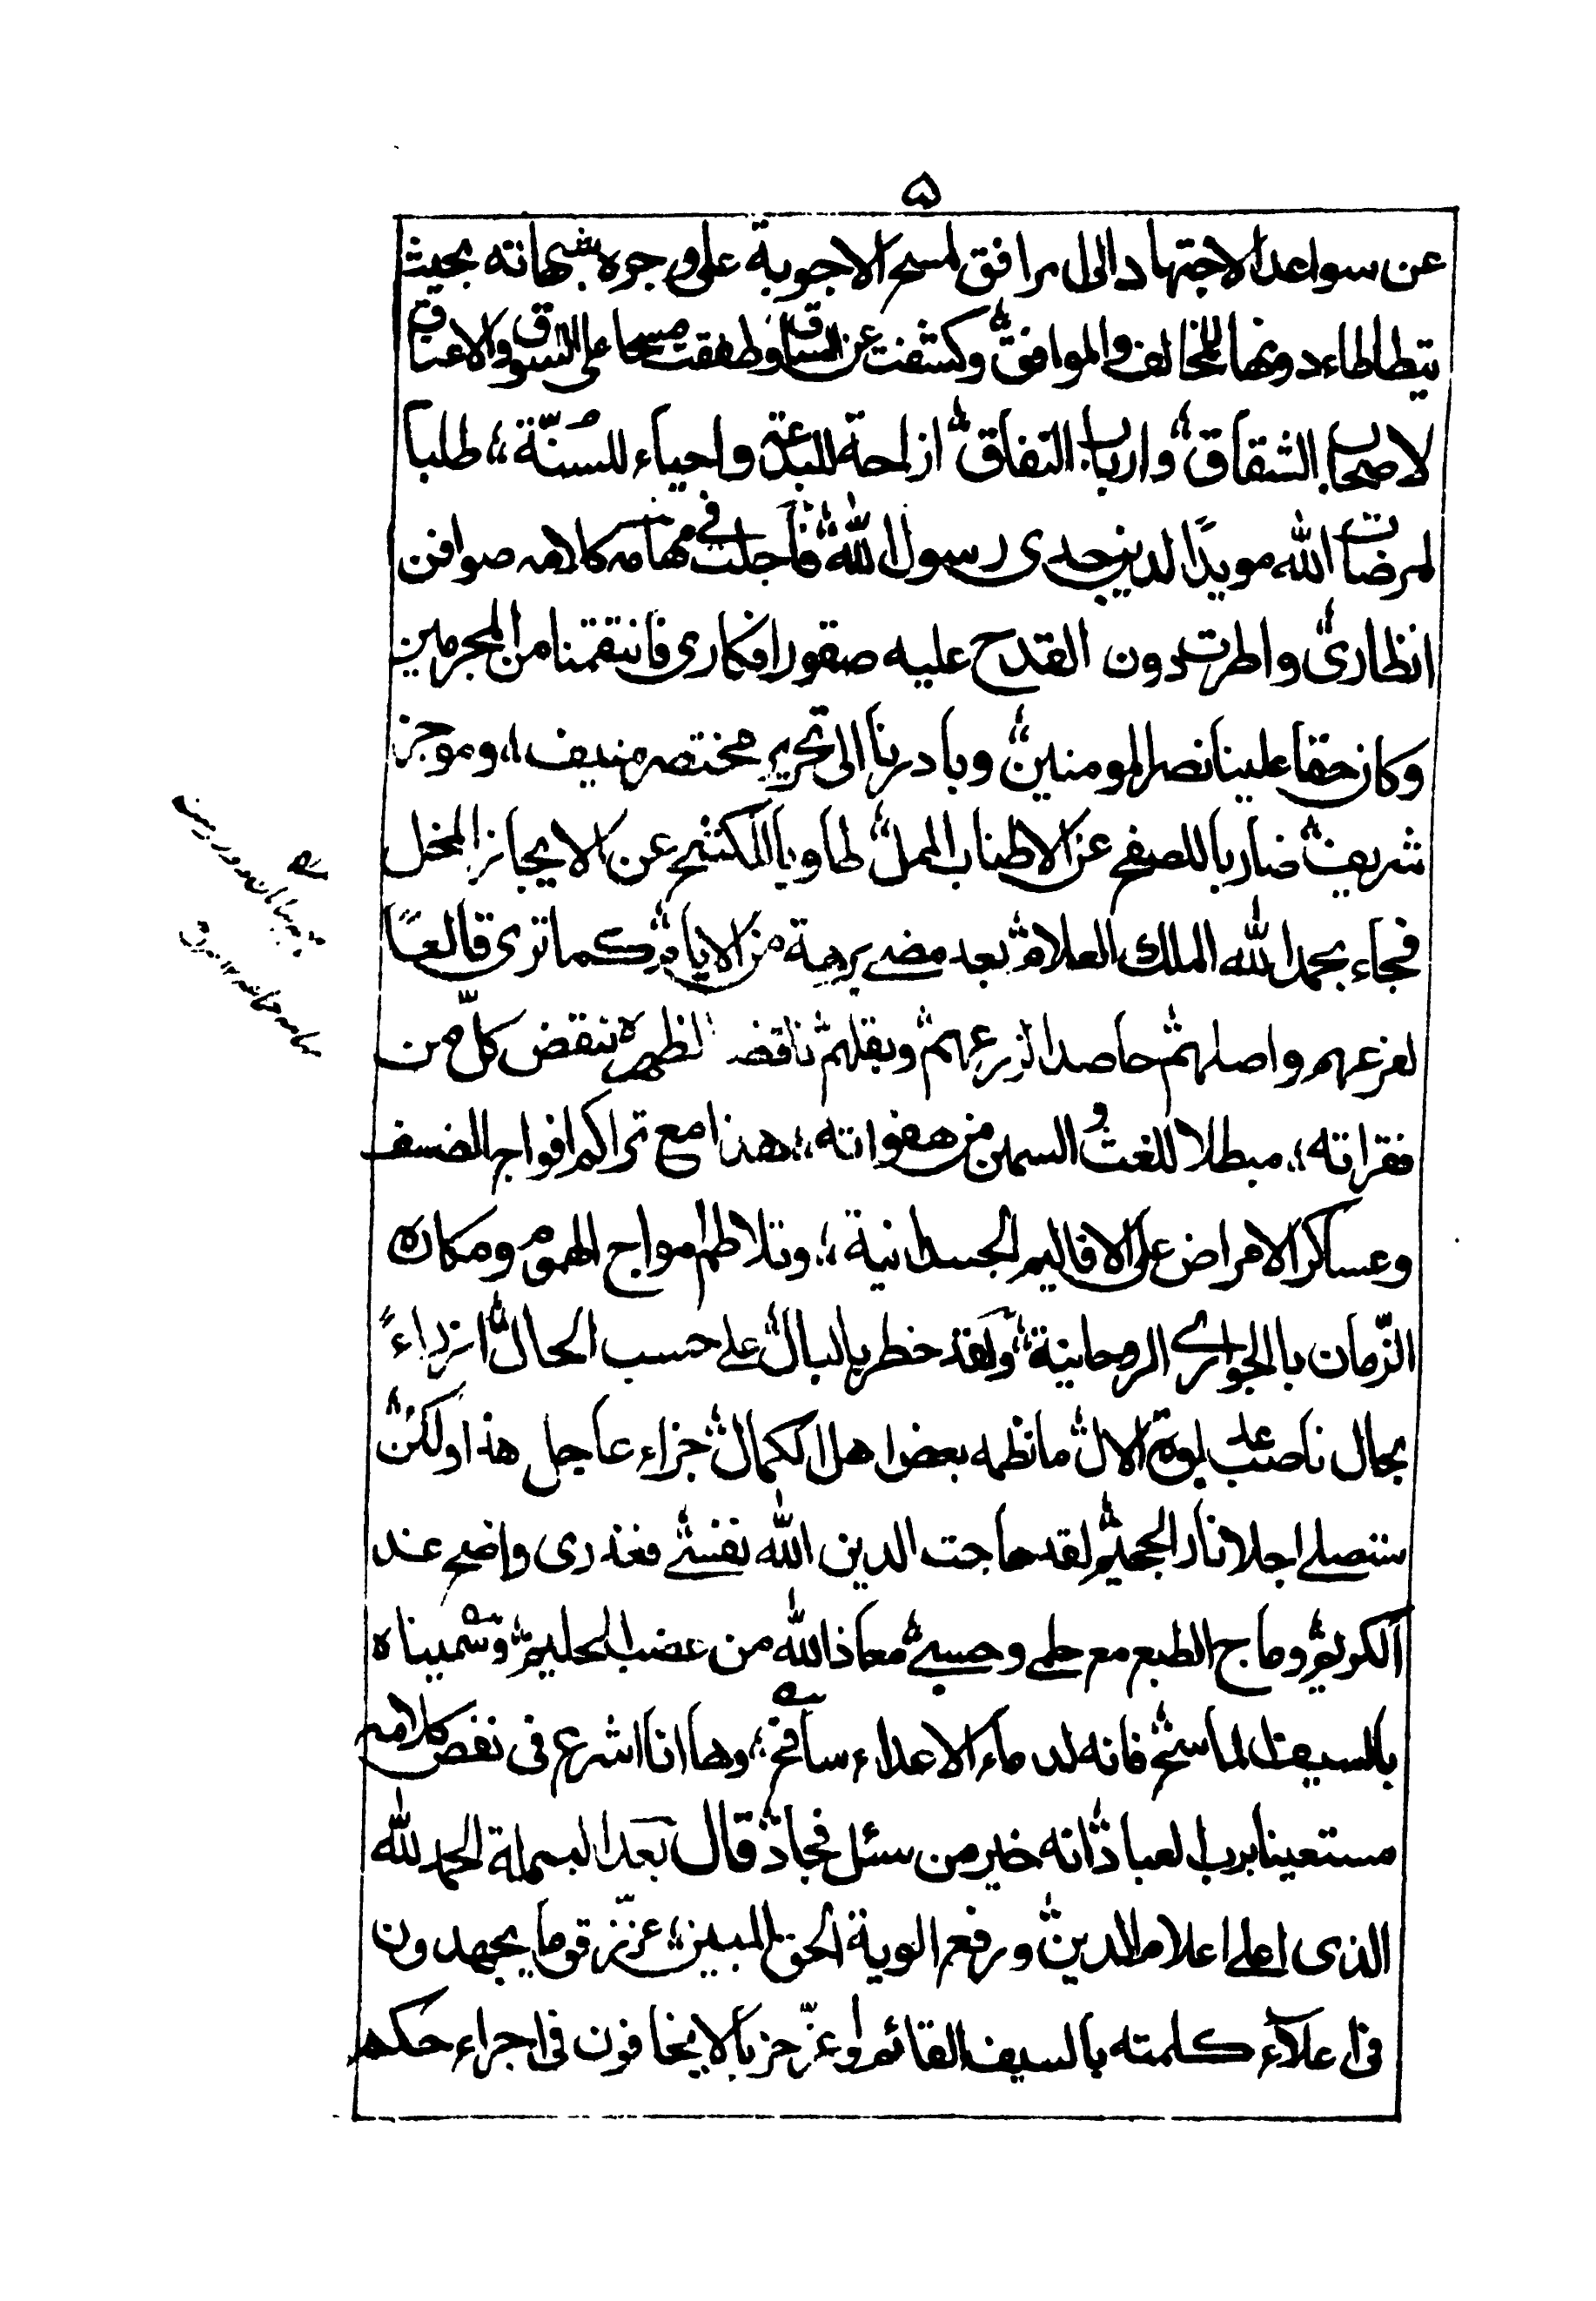 ۵
عن سواعد الاجتهاد الى المرافق لمسح الاجوبة على وجوه شبهاته بحيث
يتطاطاء دونها المخالف والموافق وكشفت عن الساق وطفقت مسحا على السوق والاعناق
لاصحاب الشقاق وارباب النفاق ازاحة للبدعة واحياء للسنّة طلبا
لمرضات الله مويدًا لدين جدى رسول الله فأجلت فى مهامه كلامه صوافن
انظارى واطرت دون القدح عليه صقور افكارى فانتقمنا من المجرمين
وكان حقا علينا نصر المومنين وبادرنا الى تحرير مختصر منيف وموجز
شريف ضاربا للصفح عن الاطناب الممل طاويا للكشح عن الايجاز المخل
فجاء بحمد الله الملك العلام بعد مضے برهة من الايام كما ترى قالعًا
لفرعهم واصلهم حاصدا لزرعهم وبقلهم ناقضا لظهره بنقض كلّ من
فقراته مبطلا للغث والسمين من هفواته هذا مع تراكم افواج الضعف
وعساكر الامراض على الاقاليم الجسدانية وتلاطم امواج الهموم ومكاره
الزّمان بالجوارى الروحانية ولقد خطر بالبال على حسب الحال ازراءً
بحال ناصب عدو الال ما نظمه بعض اهل الكمال جزاء عاجل هذا ولكن
ستصلى اجلا نار الجحيم لقد هاجت لدين الله نفسے فعذرى واضح عند
الكريم وماج الطبع مع حلمى وحسبے معاذ الله من غضب الحليم وسميناه
بالسيف الماسح فانه لدماء الاعداء سافح وها انا اشرع فى نقض كلامه
مستعينا برب العباد انه خير من سئل فجاد قال بعد البسملة الحمد لله
الذى اعلى اعلام الدين ورفع الوية الحق المبين عزّز قوما يجهدون
فى اعلاء كلمته بالسيف القائم واعزّ حزبا لا يخافون فى اجراء حكمه